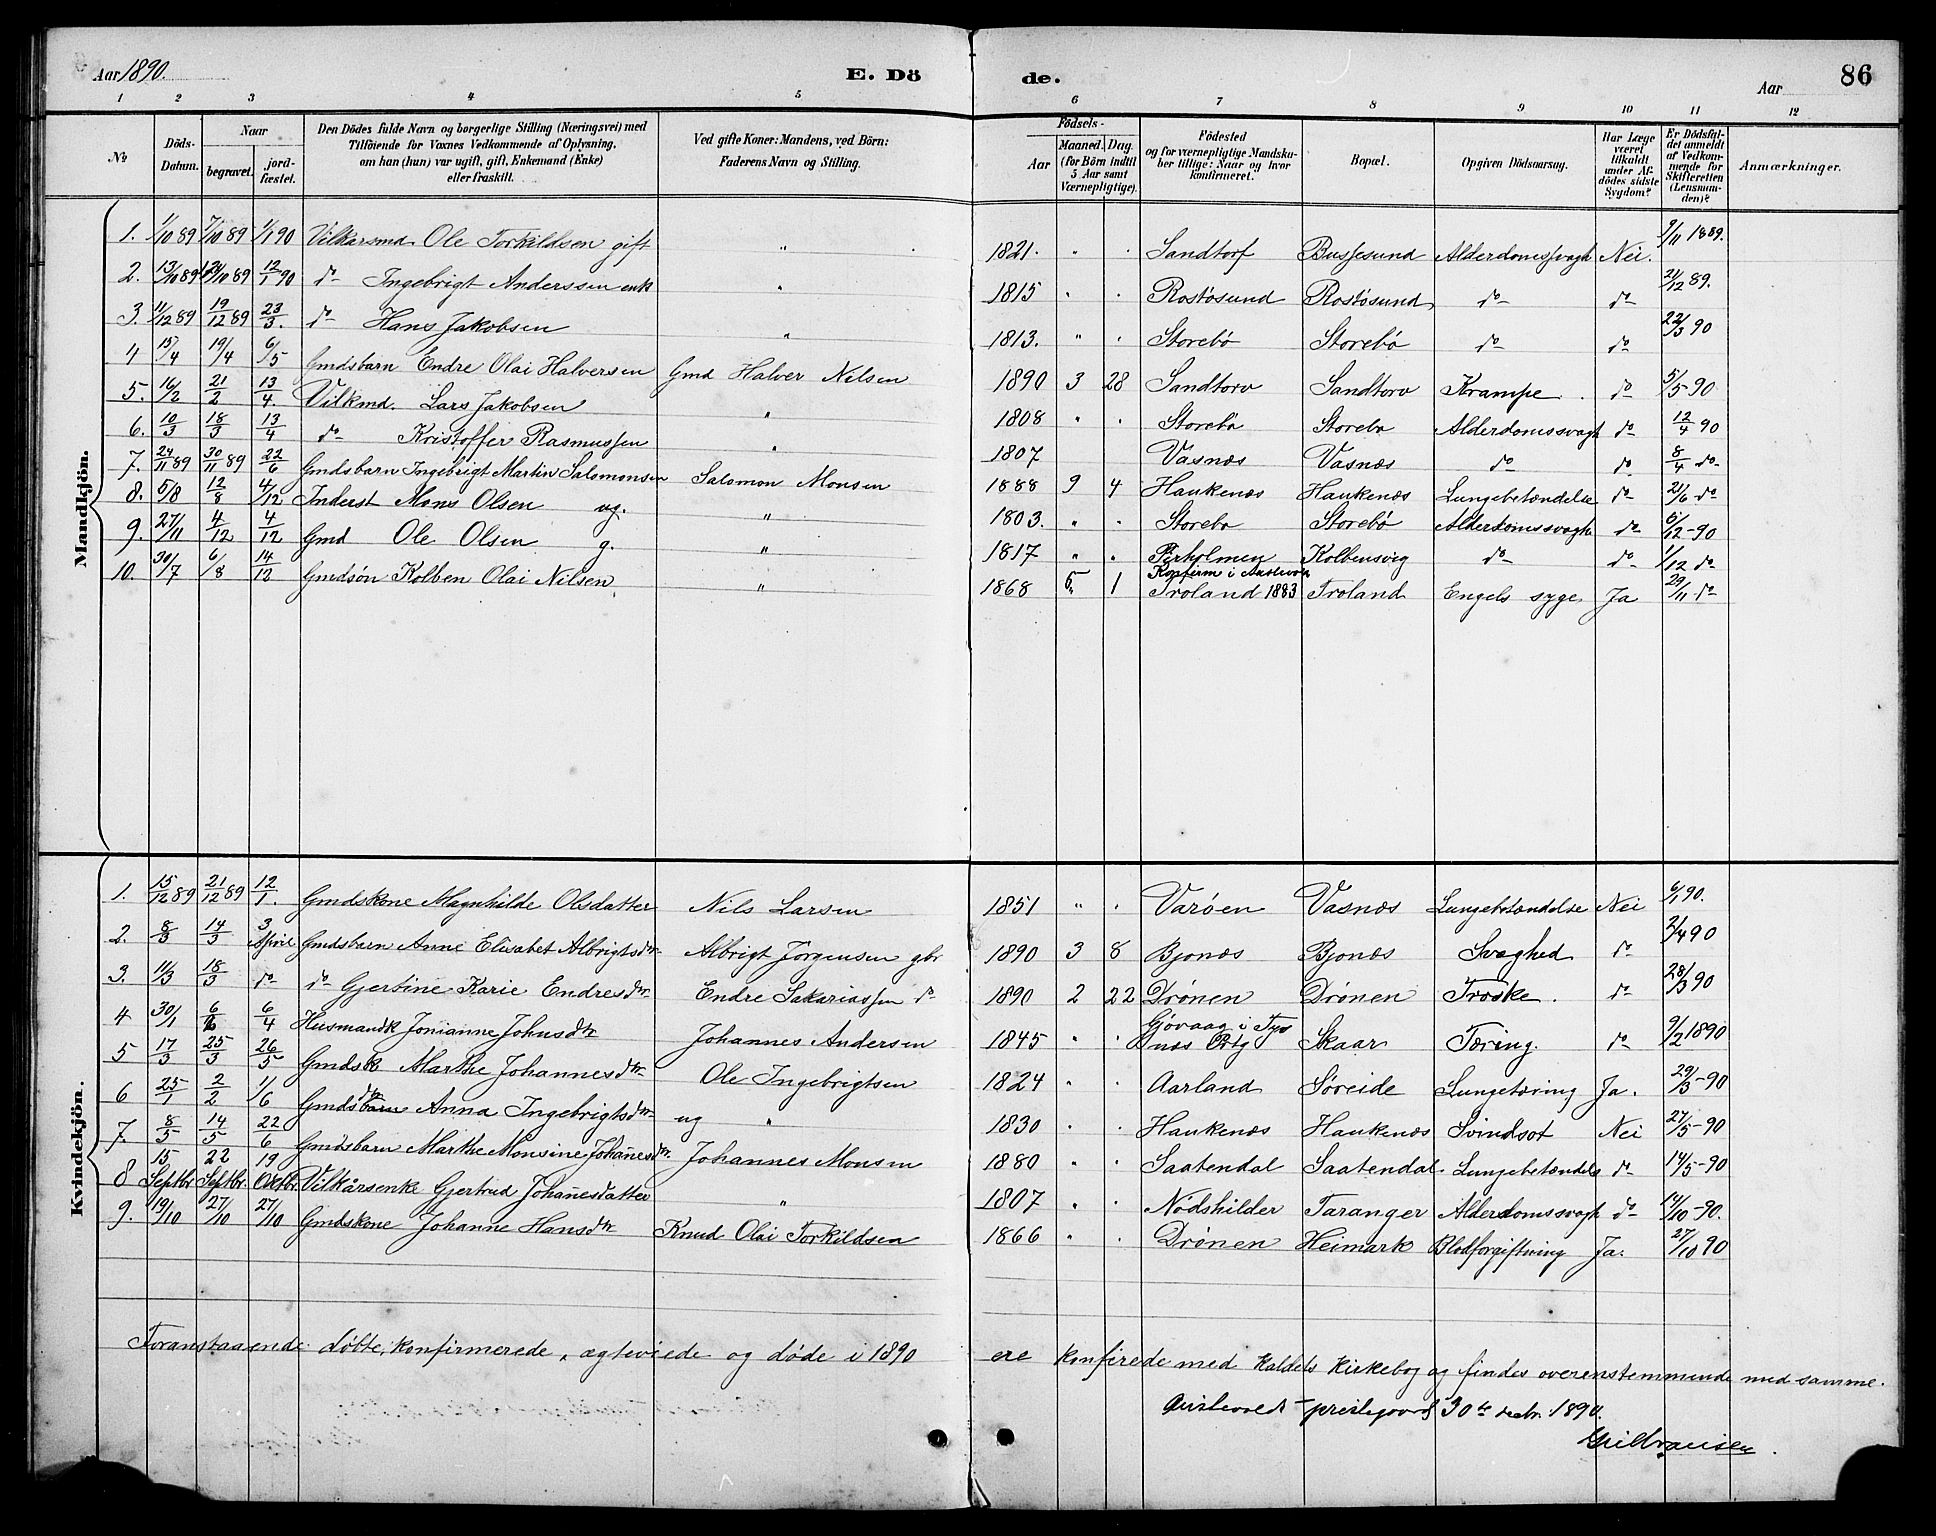 Aar 1890. E. Dö de. Aar 86
1 2 3 4 5 6 7 8 9 10 11 12
No Döds-Datum. Naar begravet. jordfæstet. Den Dödes fulde Navn og borgerlige Stilling (Næringsvei) med Tilföiende for Voxnes Vedkommende af Oplysning, om han (hun) var ugift, gift, Enkemand (Enke) eller fraskilt. Ved gifte Koner: Mandens, ved Börn: Faderens Navn og Stilling. Födsels- Aar Maaned. Dag. (for Börn indtil 5 Aar samt Værnepligtige). Födested og for værnepligtige Mandskaber tillige: Naar og hvor konfirmeret. Bopæl. Opgiven Dödsaarsag. Har Læge været tilkaldt under Afdödes sidste Sygdom? Er Dödsfaldet anmeldt af Vedkommende for Skifteretten (Lensmanden)? Anmærkninger.
Mandkjön.
1. 1/10 89 7/10 89 1/1 90 Vilkårsmd. Ole Torkildsen gift " 1821. " . Sandtorf Bussesund Alderdomssvagh Nei. 9/11 1889.
2. 13/10 89 /10 89 12/1 90 do Ingebrigt Anderssen enk " 1815 " . Rostøsund Rostøsund do do 21/12 89.
3. 11/12 89 19/12 89 23/3. do Hans Jakobsen " 1813. " . Storebø Storebø do do 22/3 90
4 15/4 19/4 6/5 Gmdsbarn Endre Olai Halversen Gmd Halver Nilsen 1890 3 28 Sandtorv Sandtorv Krampe. do 5/5 90
5. 16/2 21/2 13/4. Vilkmd. Lars Jakobsen " 1808 " . Storebø Storebø Alderdomssvagh do 12/4 90
6. 10/3 18/3 13/4 do Kristoffer Rasmussen " 1807 Vasnæs Vasnæs do do 8/4 do
7. 24/11 89 30/11 89 22/6 Gmdsbarn Ingebrigt Martin Salomonsen Salomon Monsen 1888 9 4 Haukenæs Haukenæs Lungebetændelse do 21/6 do
8. 5/8 12/8 4/12 Inderst Mons Olsen ug. " 1803. " . Storebø Storebø Alderdomssvagh do 6/12 - 90
9. 27/11 4/12 4/12 Gmd Ole Olsen g. " 1817 " . Pirholmen Kolbensvig do do 1/12 do
10. 30/7 6/8 14/12 Gmdsøn Kolben Olai Nilsen. " 1868 5. 1 Konfirm i Austevold Troland 1883 Troland Engels syge Ja 29/11 do
Kvindekjön.
1. 15/12 89 21/12 89 12/1. Gmdskone Magnhilde Olsdatter Nils Larsen 1851 " . Varøen Vasnæs Lungebetændelse Nei 6/1 90.
2. 8/3 14/3 3 April Gmdsbarn Anne Elisabet Albrigtsdtr Albrigt Jörgensen gbr 1890 3 8 Bjonæs Bjonæs Svaghed do 3/4 90
3. 11/3 18/3 do do Gjertine Karie Endresdtr Endre Sakariassen do 1890 2 22 Drönen Drönen Troske. do 28/3 90
4 30/1 6/ 6/4 Husmandk Jonianne Johnsdtr Johannes Andersen 1845 " . Gjøvaag i Tysnæs Prtg Skaar Tæring. do 9/2 1890
5 17/3 25/3 26/5 Gmdsk Marthe Johannesdtr Ole Ingebrigtsen 1824 " . Aarland Søreide Lungetæring Ja. 29/3 - 90
6 25/1 2/2 1/6 Gmdsdtr Anna Ingebrigtsdtr ug " 1830 . . Haukenæs Haukenæs Svindsot Nei 27/5 - 90
7. 8/5 14/5 22/6 Gmdsbarn Marthe Monsine Johañesdtr. Johannes Monsen 1880 " . Saatendal Saatendal. Lungebetændels do 14/5 - 90
8 15 Septbr 22 Septbr. 19 Octbr. Vilkårsenke Gjertrud Johañesdatter " 1807 " . Nødshilder Taranger Alderdomssvagh do 14/10 - 90.
9. 19/10 27/10 27/10 Gmdskone Johanne Hansdtr Knud Olai Torkildsen 1866 " . Drönen Heimark Blodforgiftning Ja. 27/10 90
Foranstaaende døbte, konfirmerede, ægteviede og døde i 1890 ere konfirede med Kaldets Kirkebog og findes overensstemmende med samme.
Austevolds prestegaard 30te decbr. 1890.